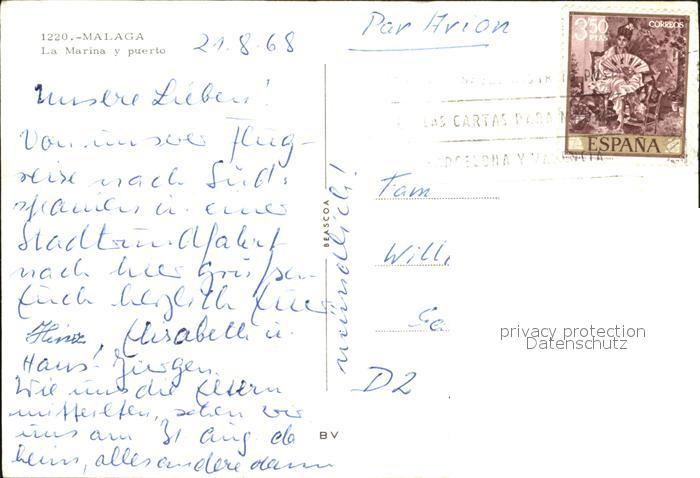 1220.-MALAGA
La Marina y puerto
21.8.68
Par Avion
3'50
PTAS
CORREOS
ESPAÑA
LAS CARTAS PARA
BARCELONA Y VALENCIA
Unsere Lieben!
Von unserer Flug-
reise nach Süd-
spanien u. einer
Stadtrundfahrt
nach hier grüßen
Euch herzlich Eure
Heinz, Elisabeth u.
Hans-Jürgen.
Wie uns die Eltern
mitteilten, sehen wir
uns am 31 Aug. da
heim, alles andere dann
mündlich!
BEASCOA
BV
Fam
Willi
D2
privacy protection
Datenschutz